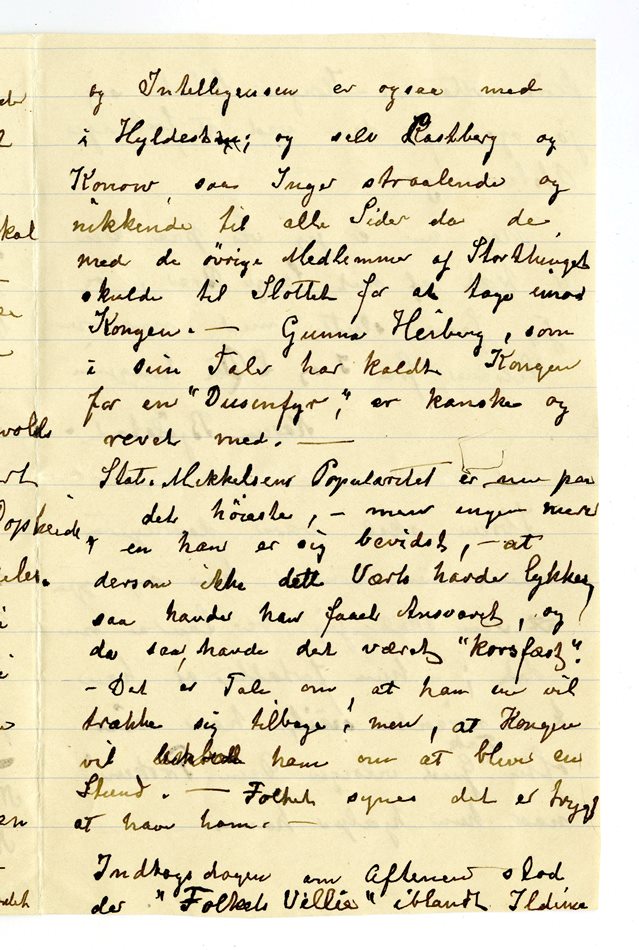 og Intelligensen er ogsaa med
i Hyldesten; og selv Castberg og
Konow saa Inger straalende og
nikkende til alle Sider da de
med de øvrige Medlemmer af Storthinget
skulde til Slottet for at tage imod
Kongen. — Gunnar Heiberg, som
i sin Tale har kaldt Kongen
for en "Dusinfyr," er kanske og
revet med. —
Stats. Mikkelsens Popularitet er nu paa
det høieste, – men ingen mere
en han er sig bevidst, – at
dersom ikke dette Værk havde lykkes,
saa havde han faaet Ansvaret, og
da saa, havde det været "korsfæst".
– Det er Tale om, at han nu vil
trække sig tilbage; men, at Kongen
vil ham om at blive en
Stund. — Folket synes det er trygt
at have ham. —
Indtogsdagen om Aftenen stod
der "Folkets Villie" iblandt Ildene
kal
volds
Opskeide